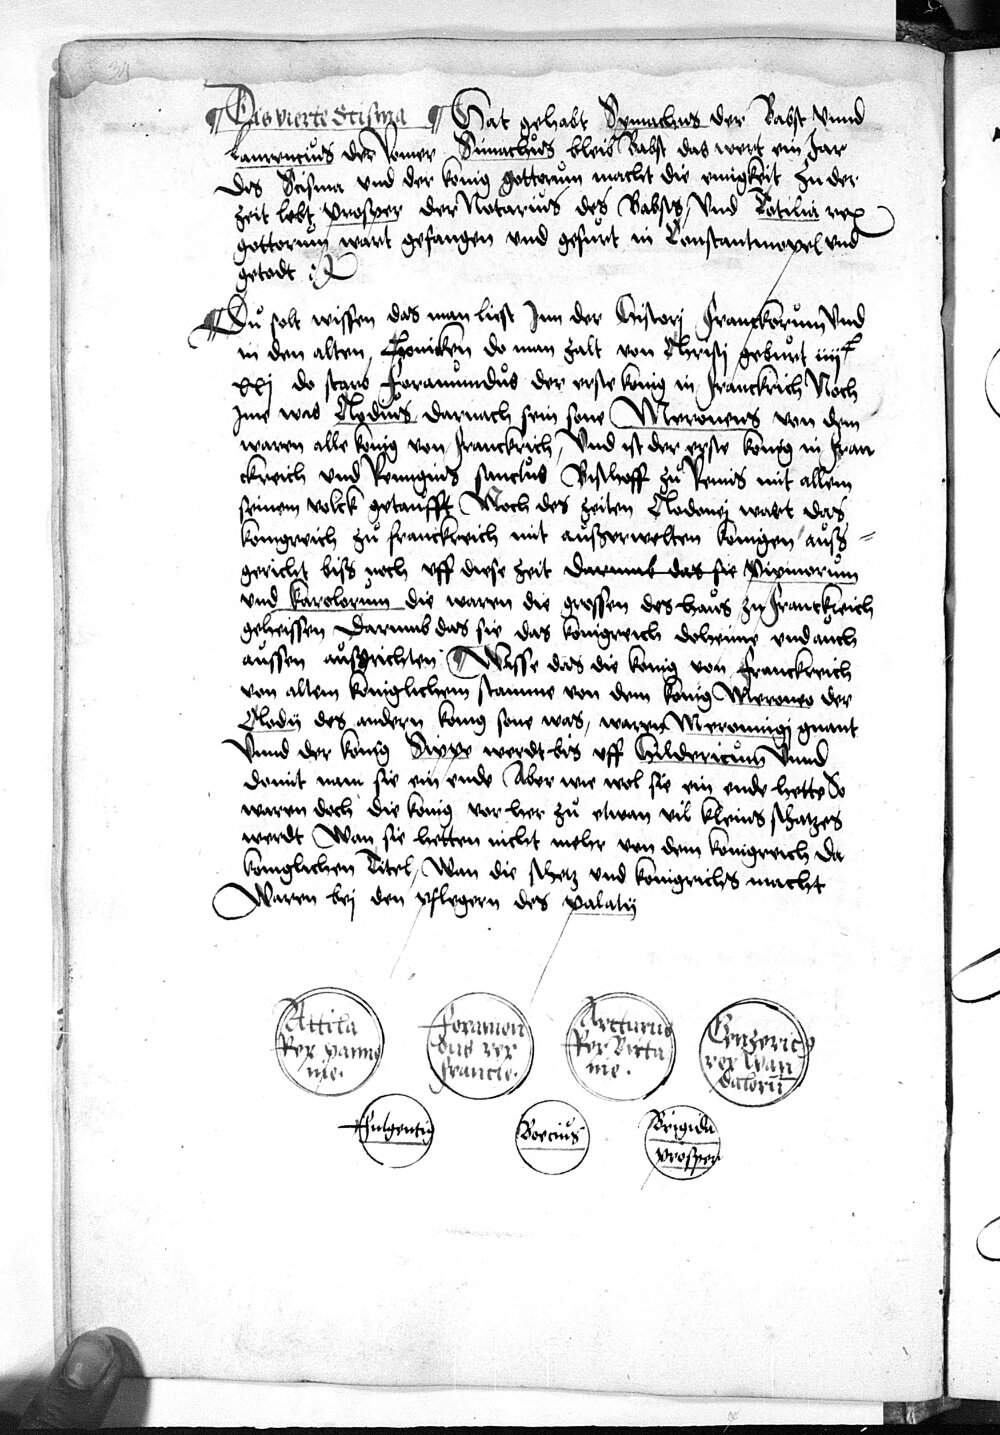 Das vierte Scisma Hat gehabt Symachus der Babst Vnnd
Laurencius der Romer Simachus bleib Babst das wert ein Jar
Des Scisma vnd der konig gottorum macht die einigkeit Zu der
Zeit lebt prosper der Notarius des Babsts, Vnd Totilia rex
gottorum wart gefangen vnd gefurt in Constantinopel vnd
getodt
Du solt wissen das man list Inn der Histori Franckorum Vnd
in den alten Chronicken do man zalt von Christi geburt iiijc
xxj do starb Foramundus der erste konig in Franckrich Noch
Ime was Clodius darnach sein sone Meroneus von dem
waren alle konig von Franckrich, Vnd ist der erste konig in Fran
ckreich vnd Remigius sanctus Bischoff zu Remis mit allem
seinem volck getaufft Noch des zeiten Clodonej wart das
konigreich zu franckreich mit außerwelten konigen auß=
gericht biß noch vff diese zeit Darumb das sie Pipinorum
vnd Karolorum die waren die grossen des haus zu Franckreich
geheissen Darumb das sie das konigreich doheime vnd auch
aussen außrichten Wisse das die konig von Franckreich
von altem koniglichem stamme von dem konig Meroneo der
Clodij des andern konig sone was, waren Meroningi gnant
Vnnd der konig Sippe werdt bis vff Hildericum Vnnd
domit nam sie ein ende Aber wie wol sie ein ende hette So
waren doch die konig vorher zu etwan vil kleins schatzes
werdt Wan sie hetten nicht mehr von dem konigreich Da
koniglichen Titel, Wan die schetz vnd konigrichs macht
Waren bej den pflegern des palatij
Attila Rex panno nie.
Foramon dus rex francie.
Arcturus Rex Birta nie.
Genzeric rex Wan dalorū
Fulgentiu
Boecius
Brigida prosper